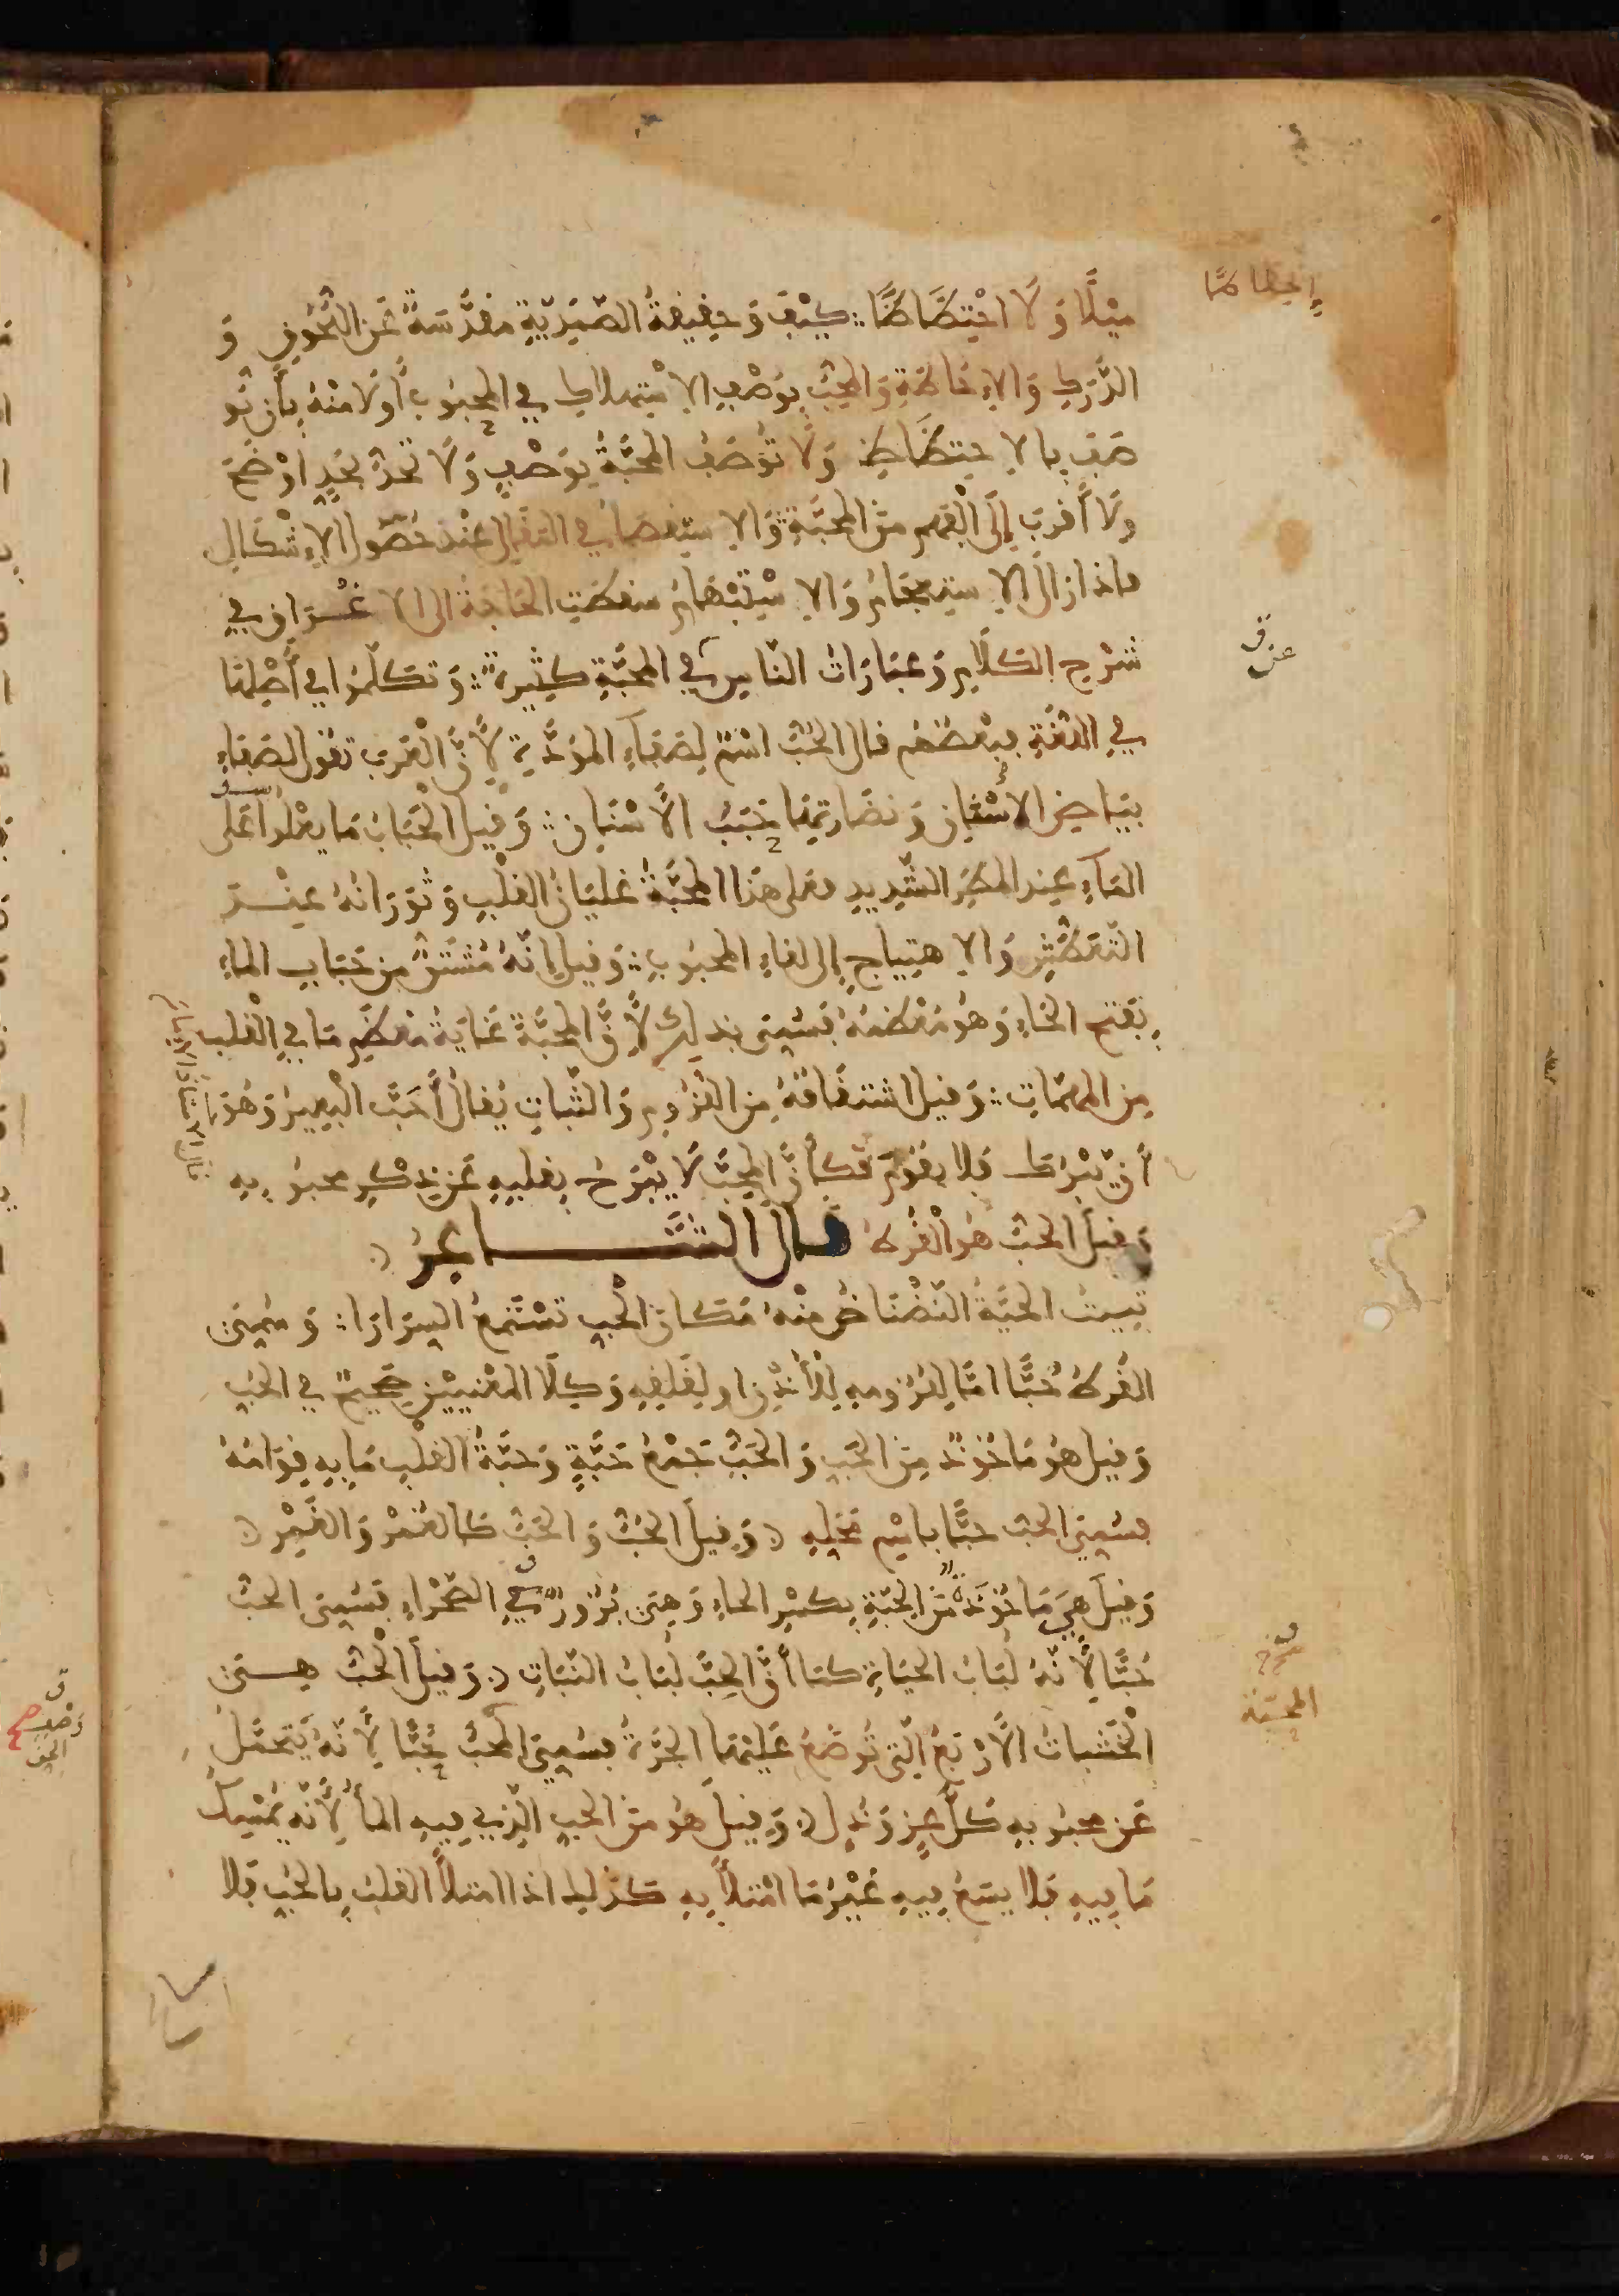 مَيْلًا وَلَا احْتِظَاظًا ؞ كَيْفَ وَحَقِيقَةُ الصَّمَدِيَّةِ مُقَدَّسَةٌ عَنِ اللُّحُوقِ وَ
الدَّرَكِ وَالْإِحَاطَةِ وَالْمُحِبُّ بِوَصْفِ الِاسْتِهْلَاكِ فِي الْمَحْبُوبِ أَوْلَا مِنْهُ بِأَنْ يُو
صَفَ بِالِاحْتِظَاظِ وَلَا تُوصَفُ الْمَحَبَّةُ بِوَصْفٍ وَلَا تُحَدُّ بِحَدٍّ أَوْضَحَ
وَلَا أَقْرَبَ إِلَى الْفَهْمِ مِنَ الْمَحَبَّةِ وَالِاسْتِقْصَا فِي الْمَقَالِ عِنْدَ حُصُولِ الْإِشْكَالِ
فإذا زالَ الِاسْتِعْجَامُ وَالِاسْتِبْهَامُ سَقَطَتِ الْحَاجَةُ إلى الإغراق في
شَرْحِ الْكَلَامِ وَعِبَارَاتُ النَّاسِ فِي الْمَحَبَّةِ كَثِيرَةٌ ؞ وَتَكَلَّمُوا فِي أَصْلِهَا
فِي اللُّغَةِ فَبَعْضُهُمْ قال الحُبُّ اسْمٌ لِصَفَاءِ الْمَوَدَّةِ لِأَنَّ الْعَرَبَ تقول لصَفَاءِ
بَيَاضِ الأسْنَانِ وَنَضَارَتِهَا حَبَبُ الْأَسْنَانِ ؞ وَقِيلَ الْحَبَابُ مَا يَعْلُوا عَلَى
الْمَاءِ عِنْدَ الْمَطَرِ الشَّدِيدِ فعلى هَذَا الْمَحَبَّةُ غَلَيَانُ الْقَلْبِ وَثَوَرَانُهُ عِنْدَ
التَّعَطُّشِ وَالِاهْتِيَاجِ إِلَى لِقَاءِ الْمَحْبُوبِ ؞ وَقِيلَ إِنَّهُ مُشْتَقٌّ مِنْ حَبَابِ الْمَاءِ
بِفَتْحِ الْحَاءِ وَهُوَ مُعْظَمُهُ فَسُمِّيَ بِذَلِكَ لِأَنَّ الْمَحَبَّةَ غَايَةُ مُعْظَمِ مَا فِي الْقَلْبِ
مِنَ الْمُهِمَّاتِ ؞ وَقِيلَ اشْتِقَاقُهُ مِنَ اللُّزُومِ وَالثَّبَاتِ يُقَالُ أَحَبَّ الْبَعِيرُ وَهُوَ
أَنْ يَبْرُكَ فَلَا يَقُومَ فَكَأَنَّ الْمُحِبَّ لَا يَبْرَحُ بِقَلْبِهِ عَنْ ذِكْرِ مَحْبُوبِهِ
وَقِيلَ الْحُبُّ هُوَ الْقُرْطُ قَالَ الشَّاعِرُ
تَبِيتُ الْحَيَّةُ النَّضْنَاضُ مِنْهُ مَكَانَ الْحِبِّ تَسْتَمِعُ السِّرَارَا ؞ وَسُمِّيَ
الْقُرْطُ حُبًّا امَّا لِلُزُومِهِ لِلْأُذُنِ او لِقَلَقِهِ وَكِلَا الْمَعْنَيَيْنِ صَحِيحٌ فِي الْحُبِّ
وَقِيلَ هُوَ مَاخُوذٌ مِنَ الْحَبِّ وَالْحَبُّ جَمْعُ حَبَّةٍ وَحَبَّةُ الْقَلْبِ مَا بِهِ قِوَامُهُ
فسُمِّيَ الْحُبُّ حبًّا بِاسْمِ مَحَلِّهِ وَقِيلَ الْحُبُّ وَالْحَبُّ كَالْعُمْرِ وَالْعَمْرِ
وَقِيلَ هِيَ مَاخُوذَةٌ مِنَ الْحِبَّةِ بِكَسْرِ الْحَاءِ وَهِيَ بُزُورٌ فِي الصَّحْرَاءِ فَسُمِّيَ الْحُبُّ
حُبًّا لِأَنَّهُ لُبَابُ الْحَيَاةِ كَمَا أَنَّ الْحِبَّ لُبَابُ النَّبَاتِ وَقِيلَ الْحُبُّ هِيَ
الْخَشَبَاتُ الْأَرْبَعُ الَّتِي تُوضَعُ عَلَيْهَا الْجَرَّةُ فسُمِّيَ الْحُبُّ حُبًّا لِأَنَّهُ يَتَحَمَّلُ
عَنْ مَحْبُوبِهِ كُلَّ عِزٍّ وَذُلٍّ وَقِيلَ هُوَ مِنَ الْحُبِّ الَّذِي فِيهِ الْمَاءُ لِأَنَّهُ يُمْسِكُ
مَا فِيهِ فَلَا يَسَعُ فِيهِ غَيْرُ مَا امْتَلَأَ بِهِ كَذَلِكَ اذَا امْتَلَأَ الْقَلْبُ بِالْحُبِّ فَلَا
المحبة